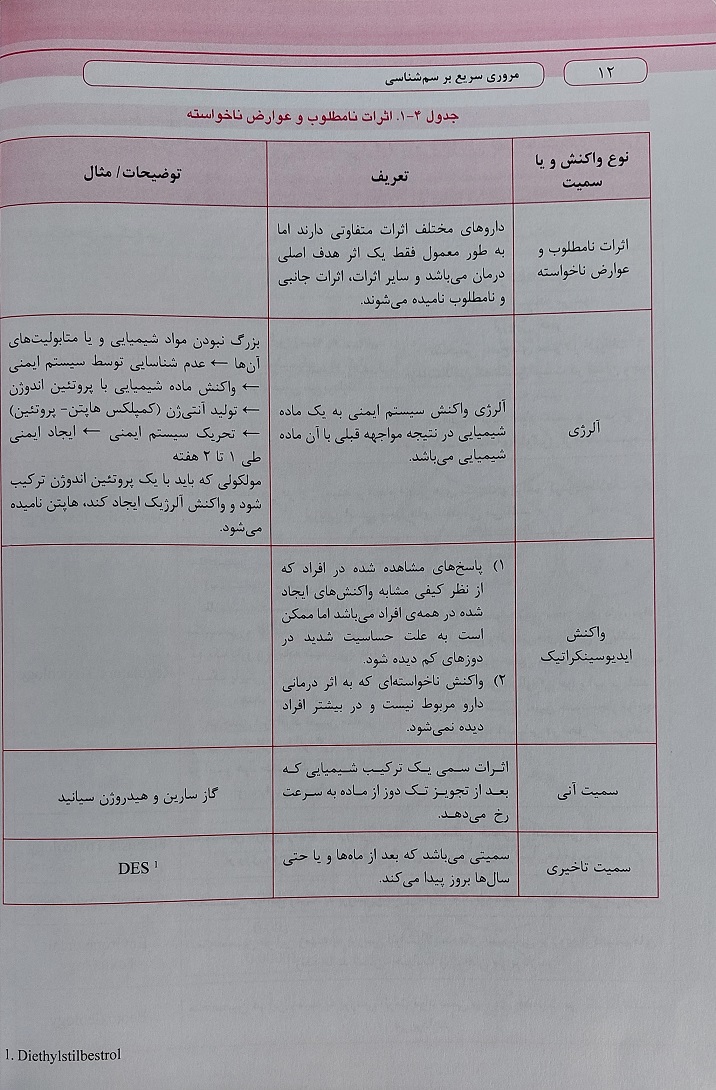 ۱۲
مروری سریع بر سم‌شناسی
جدول ۴-۱. اثرات نامطلوب و عوارض ناخواسته
نوع واکنش و یا
سمیت
تعریف
توضیحات/ مثال
اثرات نامطلوب و
عوارض ناخواسته
داروهای مختلف اثرات متفاوتی دارند اما
به طور معمول فقط یک اثر هدف اصلی
درمان می‌باشد و سایر اثرات، اثرات جانبی
و نامطلوب نامیده می‌شوند.
آلرژی
آلرژی واکنش سیستم ایمنی به یک ماده
شیمیایی در نتیجه مواجهه قبلی با آن ماده
شیمیایی می‌باشد.
بزرگ نبودن مواد شیمیایی و یا متابولیت‌های
آن‌ها ← عدم شناسایی توسط سیستم ایمنی
← واکنش ماده شیمیایی با پروتئین اندوژن
← تولید آنتی‌ژن (کمپلکس هاپتن- پروتئین)
← تحریک سیستم ایمنی ← ایجاد ایمنی
طی ۱ تا ۲ هفته
مولکولی که باید با یک پروتئین اندوژن ترکیب
شود و واکنش آلرژیک ایجاد کند، هاپتن نامیده
می‌شود.
واکنش
ایدیوسینکراتیک
۱) پاسخ‌های مشاهده شده در افراد که
از نظر کیفی مشابه واکنش‌های ایجاد
شده در همه‌ی افراد می‌باشد اما ممکن
است به علت حساسیت شدید در
دوزهای کم دیده شود.
۲) واکنش ناخواسته‌ای که به اثر درمانی
دارو مربوط نیست و در بیشتر افراد
دیده نمی‌شود.
سمیت آنی
اثرات سمی یک ترکیب شیمیایی که
بعد از تجویز تک دوز از ماده به سرعت
رخ می‌دهد.
گاز سارین و هیدروژن سیانید
سمیت تاخیری
سمیتی می‌باشد که بعد از ماه‌ها و یا حتی
سال‌ها بروز پیدا می‌کند.
DES ¹
1. Diethylstilbestrol